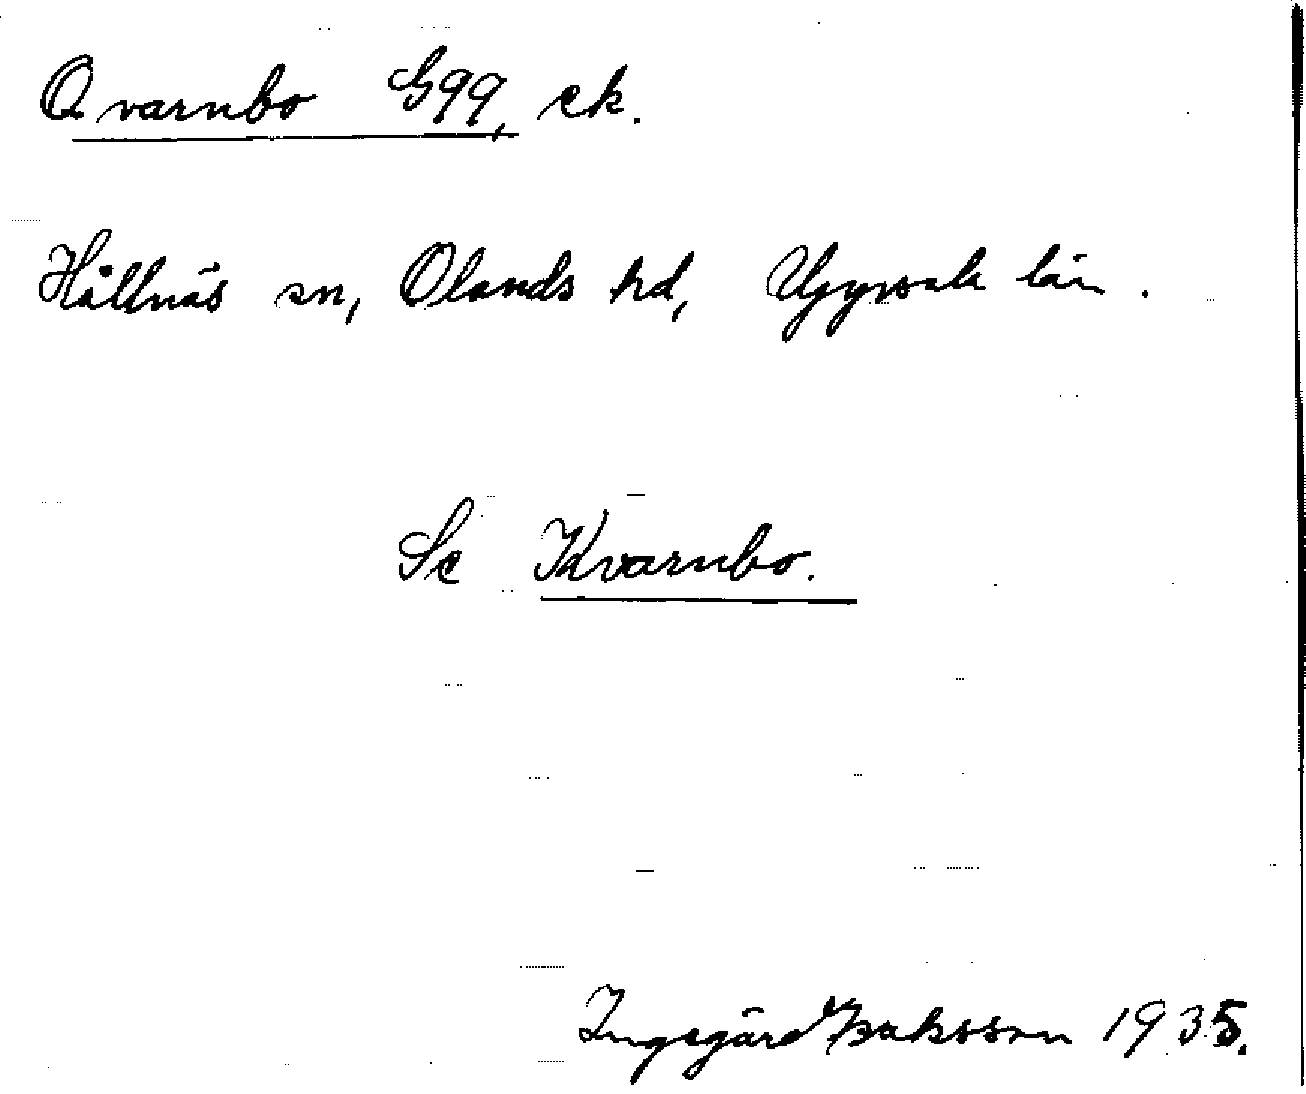 Qvarnbo G99, ek.
Hållnäs sn, Olands hd, Uppsala län.
Se Kvarnbo.
Ingegärd Isaksson 1935.